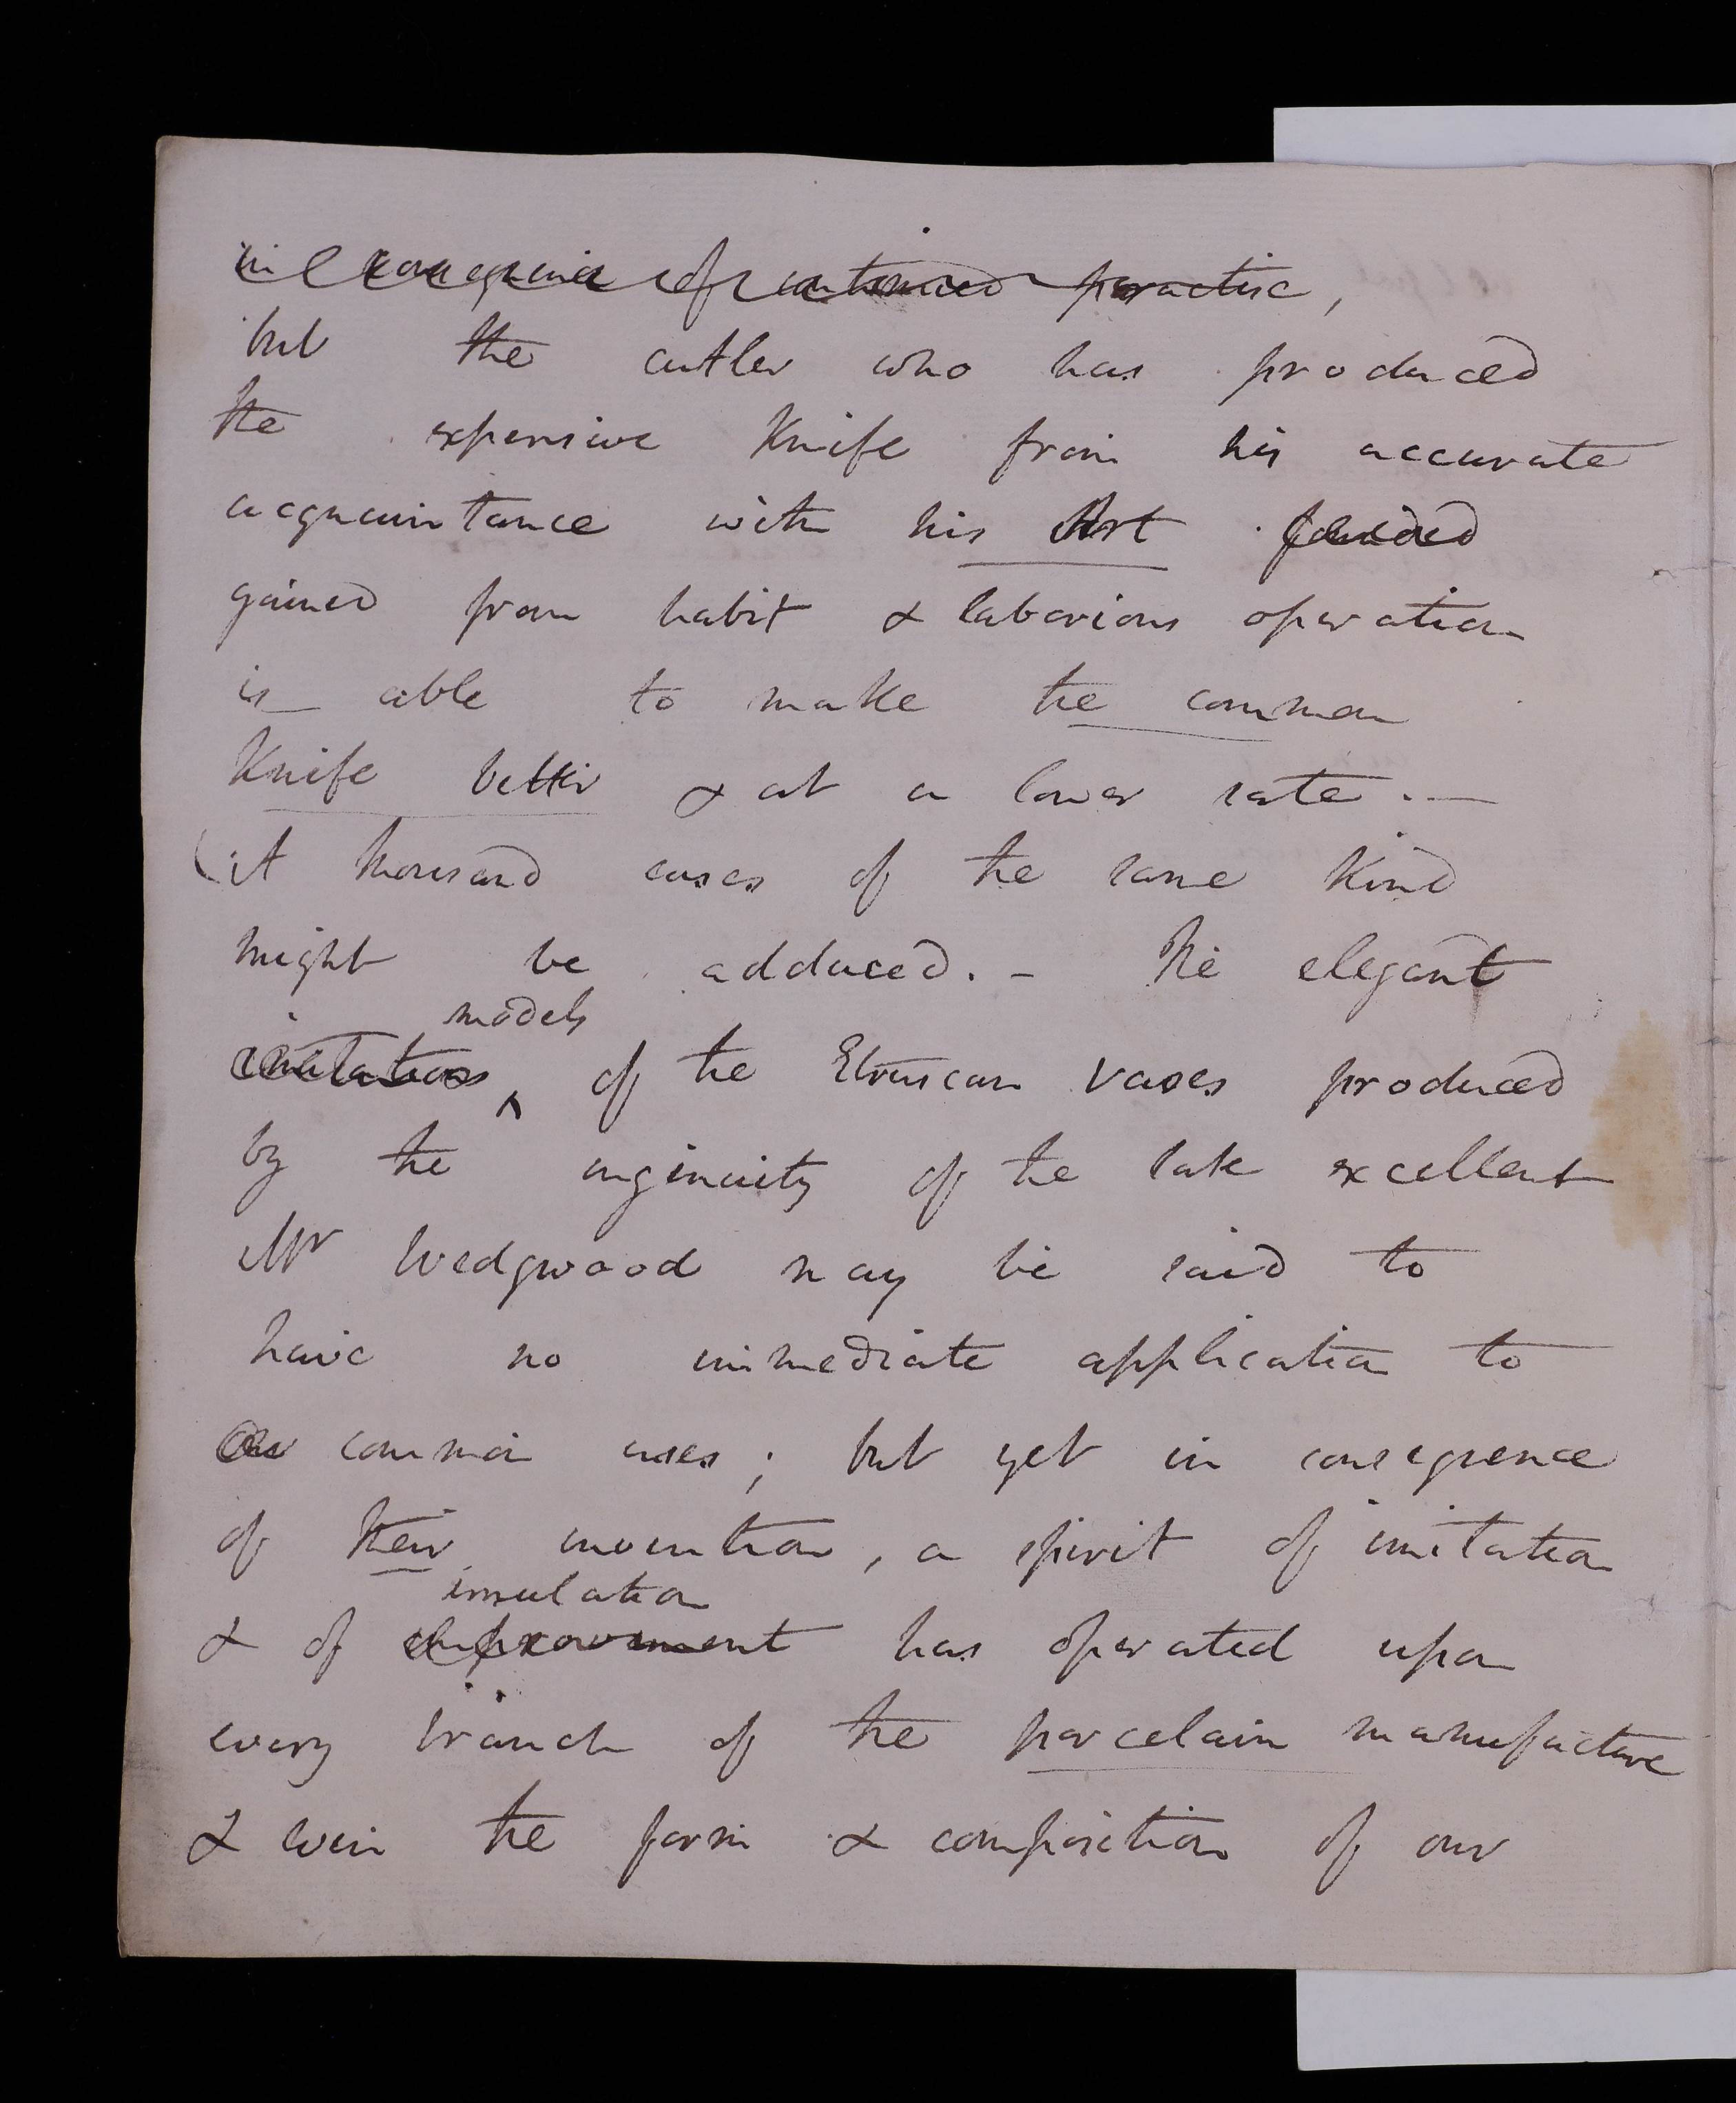 in consequence of continued practise,
but the cutler who has produced
the expensive Knife from his accurate
acquaintance with his Art founded
gained from habit & laborious operation
is able to make the common
Knife better & at a lower rate. —
(A thousand cases of the same Kind
might be adduced. – The elegant
models
imitations ^ of the Etruscan vases produced
by the ingenuity of the late excellent
Mr Wedgwood may be said to
have no immediate application to
our common uses; but yet in consequence
of their invention, a spirit of imitation
emulation
& of improvement has operated upon
every branch of the porcelain manufacture
& even the form & composition of our